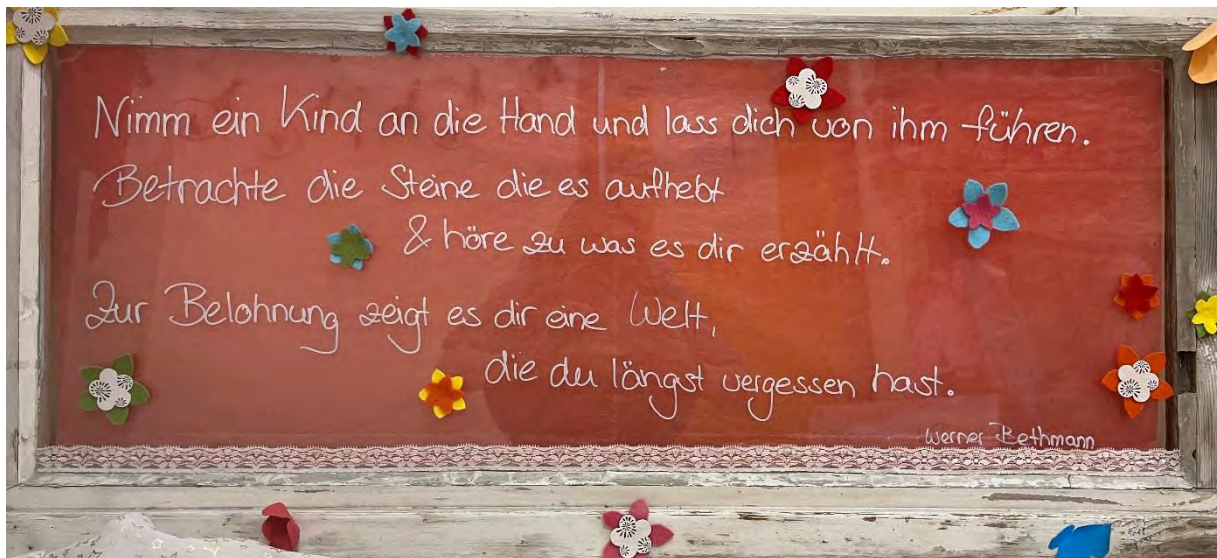 Nimm ein Kind an die Hand und lass dich von ihm führen.
Betrachte die Steine die es aufhebt
& höre zu was es dir erzählt.
Zur Belohnung zeigt es dir eine Welt,
die du längst vergessen hast.
Werner Bethmann